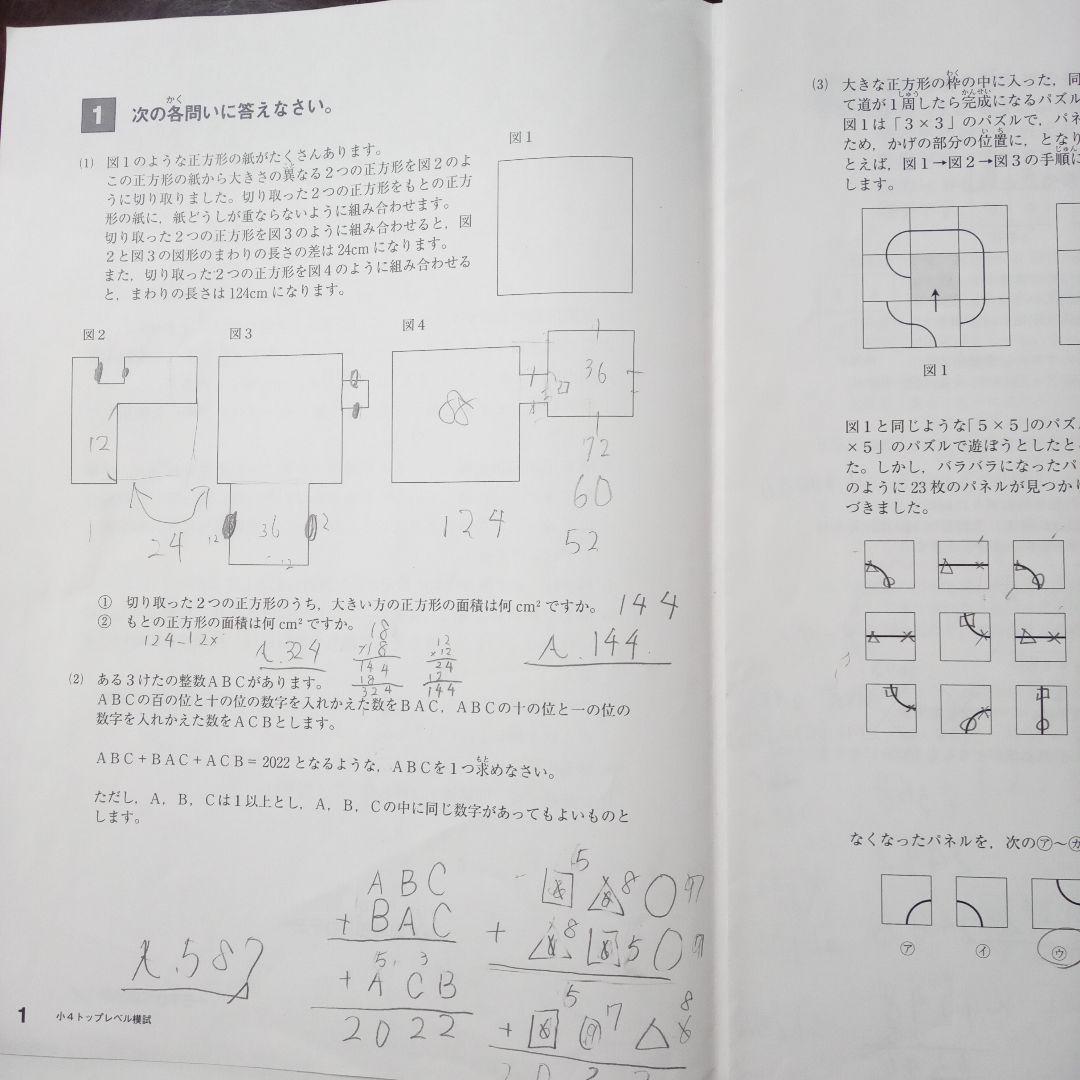 1 次の各問いに答えなさい。
かく
(1) 図1のような正方形の紙がたくさんあります。
この正方形の紙から大きさの異なる2つの正方形を図2のよ
こと
うに切り取りました。切り取った2つの正方形をもとの正方
形の紙に，紙どうしが重ならないように組み合わせます。
切り取った2つの正方形を図3のように組み合わせると，図
2と図3の図形のまわりの長さの差は24cmになります。
また，切り取った2つの正方形を図4のように組み合わせる
と，まわりの長さは124cmになります。
図1
図2
図3
図4
12
24
12
36
2
12
88
36
124
72
60
52
① 切り取った2つの正方形のうち，大きい方の正方形の面積は何cm²ですか。
144
② もとの正方形の面積は何cm²ですか。
124-12×
A.324
18
×18
144
18
324
12
×12
24
12
144
A.144
(2) ある3けたの整数ABCがあります。
ABCの百の位と十の位の数字を入れかえた数をBAC，ABCの十の位と一の位の
数字を入れかえた数をACBとします。
ABC＋BAC＋ACB＝2022となるような，ABCを1つ求めなさい。
もと
ただし，A，B，Cは1以上とし，A，B，Cの中に同じ数字があってもよいものと
します。
A.587
ABC
+BAC
5 3
+ACB
2022
5
8
7
+
8
5
5
7
8
+
1
小4トップレベル模試
(3) 大きな正方形の枠の中に入った，同
わく
て道が1周したら完成になるパズル
しゅう かんせい
図1は「3×3」のパズルで，パネ
ため，かげの部分の位置に，となり
いち
とえば，図1→図2→図3の手順に
じゅん
します。
図1
図1と同じような「5×5」のパズル
×5」のパズルで遊ぼうとしたと
た。しかし，バラバラになったパ
のように23枚のパネルが見つかり
づきました。
なくなったパネルを，次の㋐～㋕
㋐
㋑
㋒